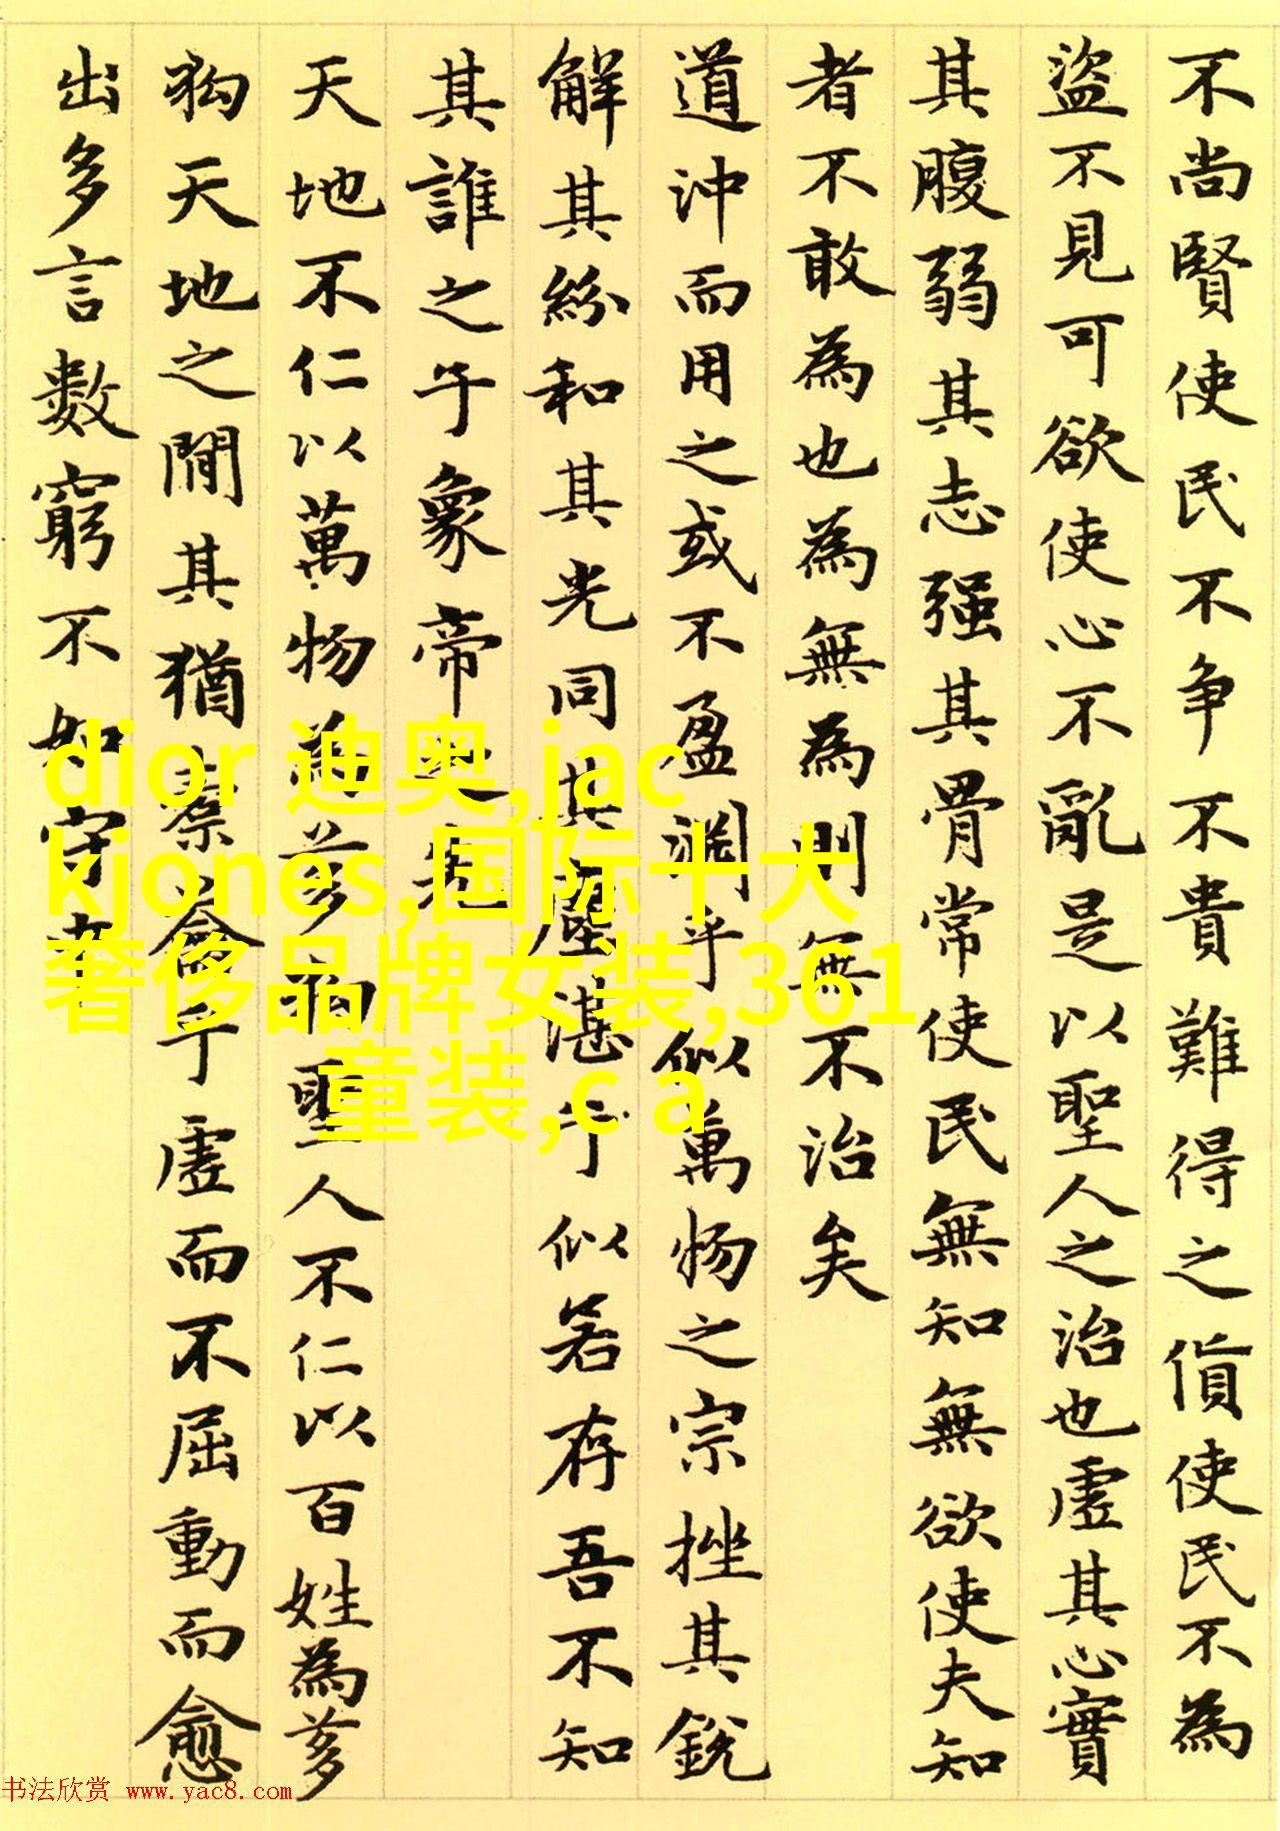 不尚賢使民不争不貴難得之貨使民不為
盜不見可欲使心不亂是以聖人之治也虛其心實
其腹弱其志强其骨常使民無知無欲使夫知
者不敢為也為無為則無不治矣
道沖而用之或不盈淵乎似萬物之宗挫其銳
解其紛和其光同其塵湛乎似若存吾不知
其誰之子象帝之先
天地不仁以萬物為芻狗聖人不仁以百姓為芻
狗天地之間其猶橐籥乎虛而不屈動而愈
出多言數窮不如守中
dior 迪奥,jac
kjones,国际十大
奢侈品牌女装,361
童装,c a
书法欣赏 www.yac8.com